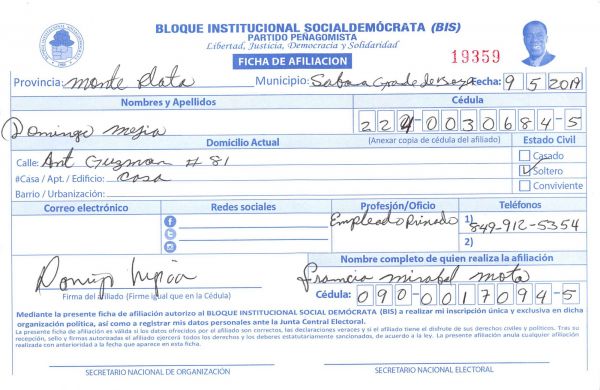 BLOQUE INSTITUCIONAL SOCIALDEMÓCRATA (BIS)
PARTIDO PEÑAGOMISTA
Libertad, Justicia, Democracia y Solidaridad
FICHA DE AFILIACION
19359
Provincia: Monte Plata Municipio: Sabana Grande de Boya Fecha: 9 5 2019
Nombres y Apellidos Cédula
Domingo Mejia 224-0030684-5
(Anexar copia de cédula del afiliado)
Domicilio Actual Estado Civil
Calle: Ant Guzman # 81 Casado
#Casa / Apt. / Edificio: Casa Soltero
Barrio / Urbanización: Conviviente
Correo electrónico Redes sociales Profesión/Oficio Teléfonos
Empleado Privado 1) 849-912-5354
2)
Nombre completo de quien realiza la afiliación
Domingo Mejia Francia Mirabal Mota
Firma del afiliado (Firme igual que en la Cédula) Cédula: 090-0017094-5
Mediante la presente ficha de afiliación autorizo al BLOQUE INSTITUCIONAL SOCIAL DEMÓCRATA (BIS) a realizar mi inscripción única y exclusiva en dicha
organización política, así como a registrar mis datos personales ante la Junta Central Electoral.
La presente ficha de afiliación es válida a los datos ofrecidos por el afiliado son correctos, las declaraciones verates y si el afiliado tiene el disfrute de sus derechos civiles y políticos. Tras su
recepción, sello y firmas autorizadas el afiliado ejercerá todos los derechos y los deberes estatutariamente sancionados, de acuerdo a la ley. La presente afiliación anula cualquier afiliación
realizada con anterioridad a la fecha que aparece en esta ficha.
SECRETARIO NACIONAL DE ORGANIZACIÓN SECRETARIO NACIONAL ELECTORAL